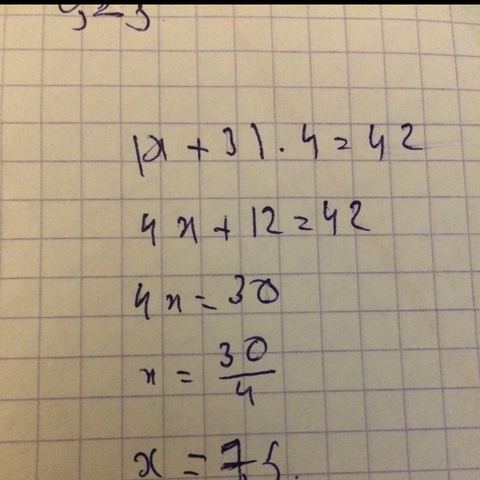 |x + 3| . 4 = 42
4x + 12 = 42
4x = 30
x = 30/4
x = 7,5.